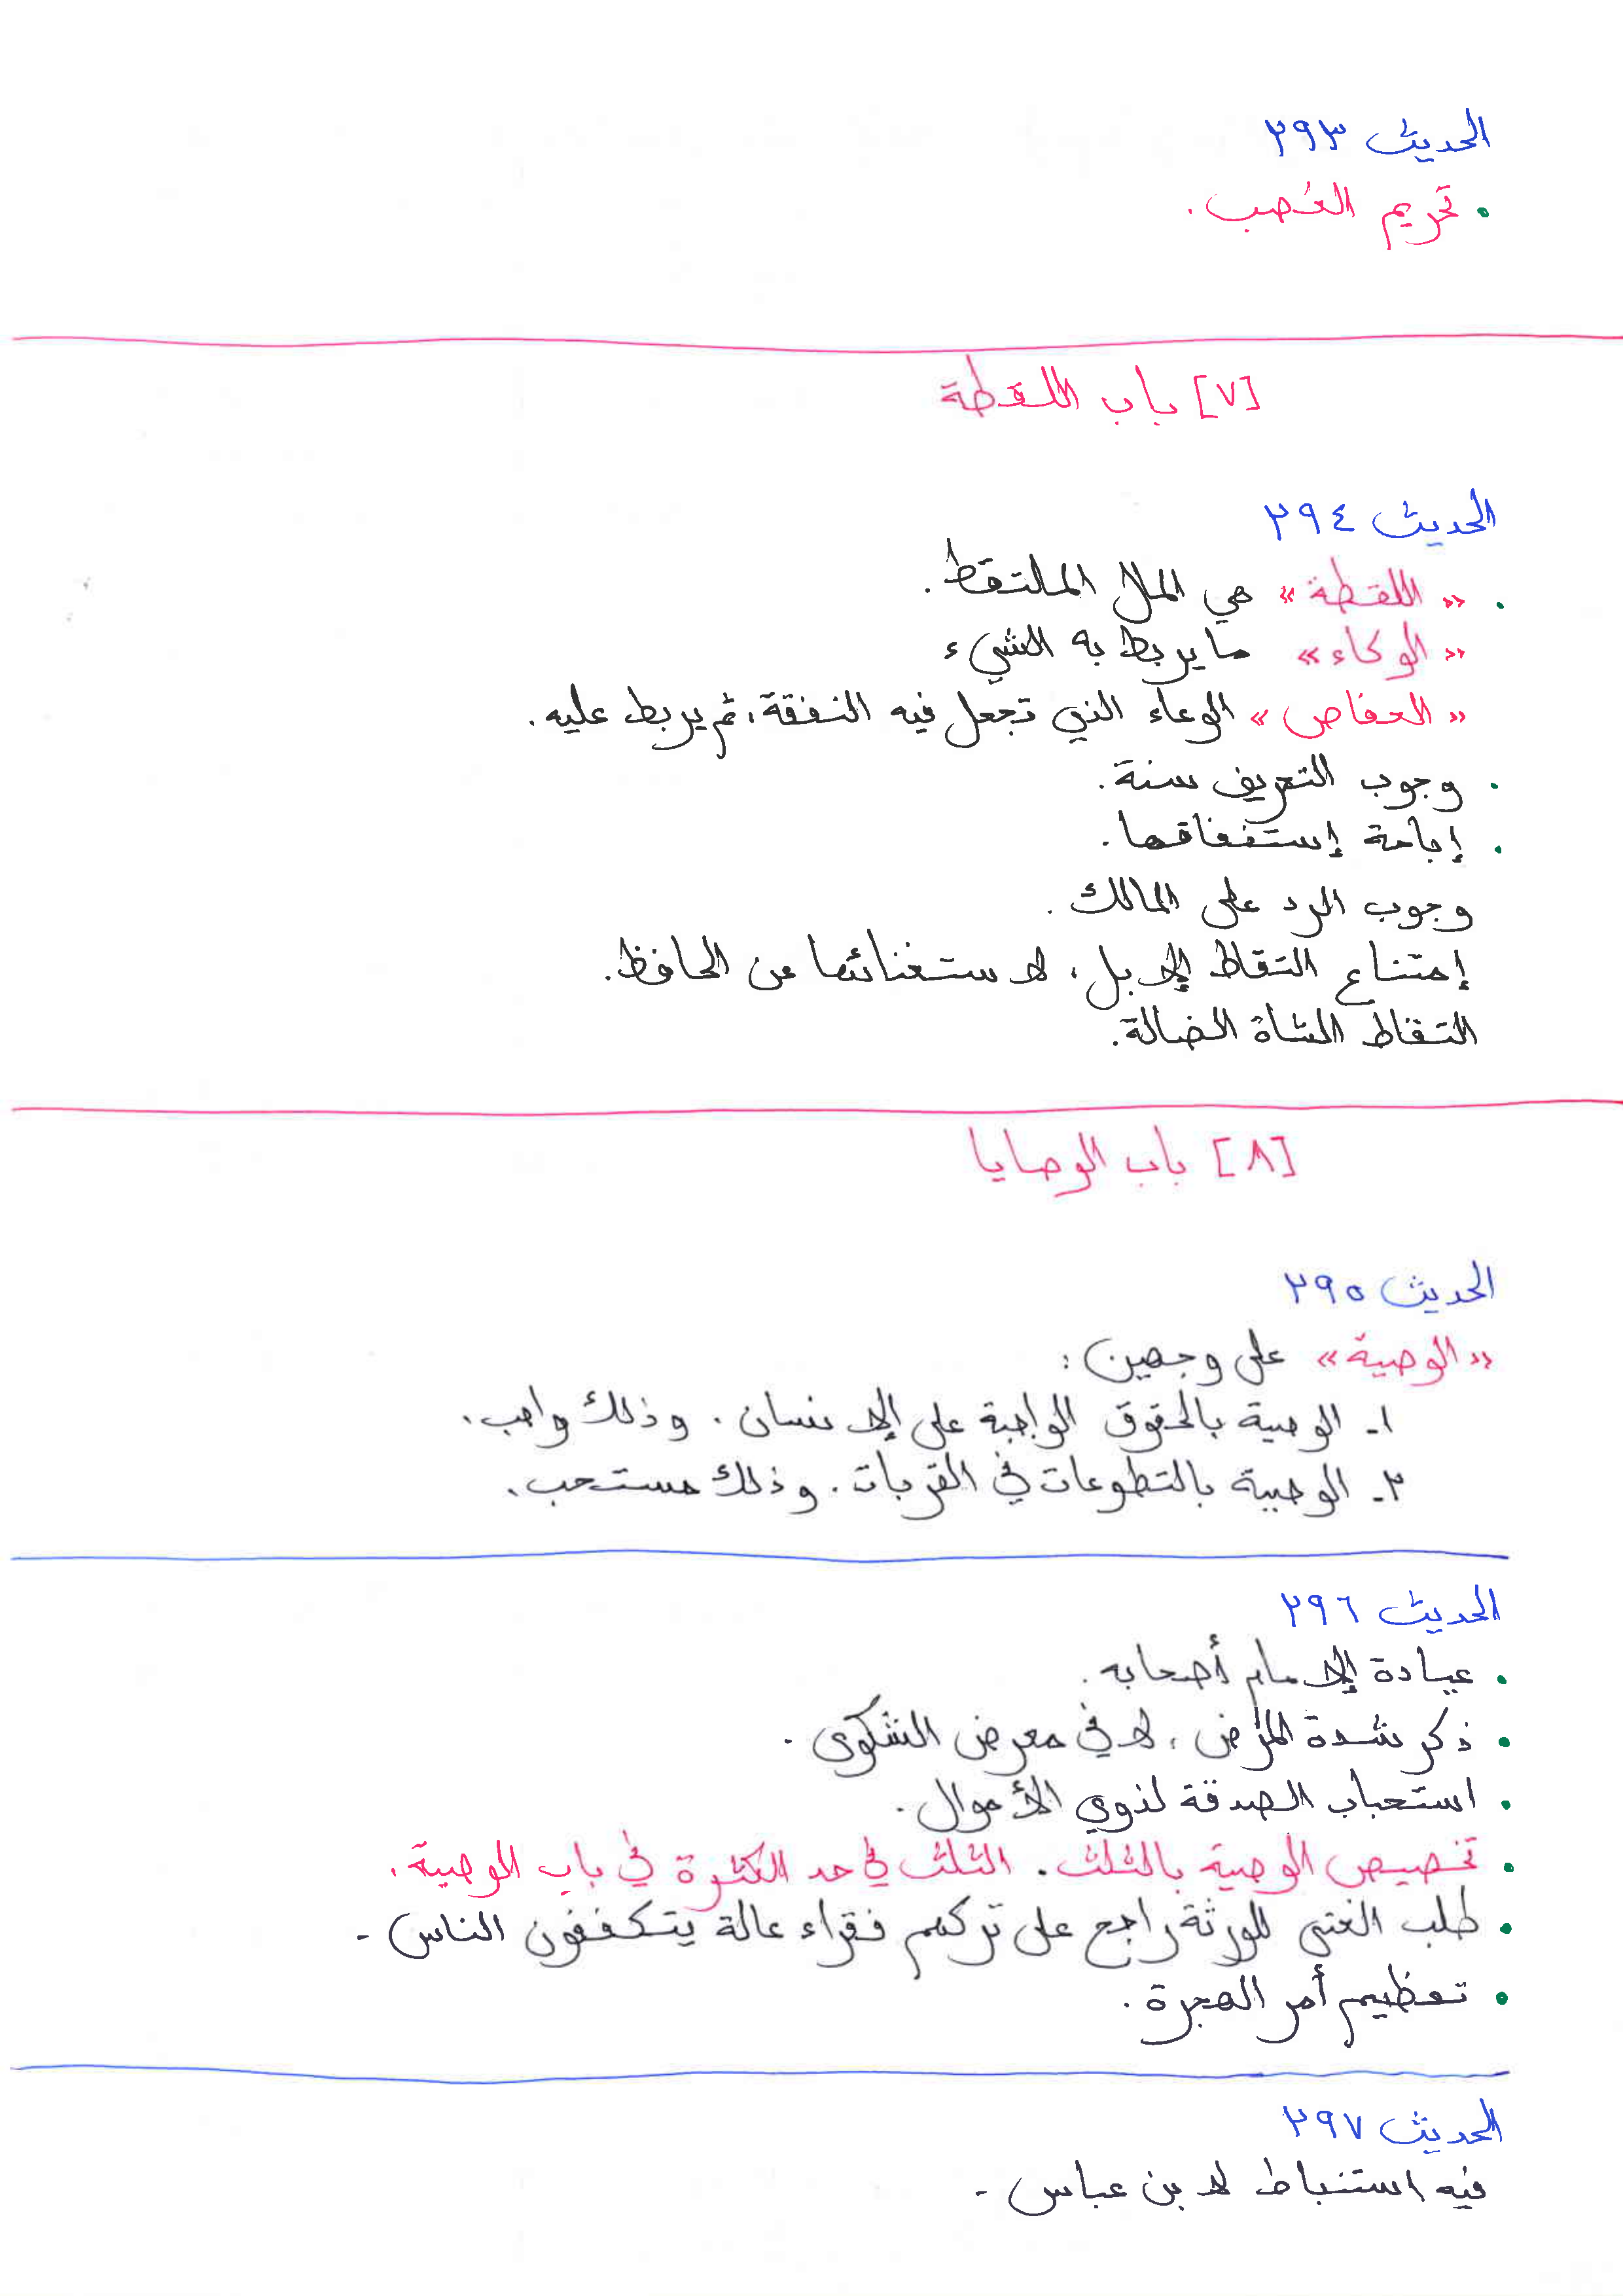 الحديث ٢٩٣
• تحريم الغصب.
[٧] باب اللقطة
الحديث ٢٩٤
• «اللقطة» هي المال الملتقط.
«الوكاء» ما يربط به الشيء
«العفاص» الوعاء الذي تجعل فيه النفقة، ثم يربط عليه.
• وجوب التعريف سنة.
• إباحة إستنفاقها.
وجوب الرد على المالك.
إمتناع التقاط الإبل، لاستغنائها عن الحافظ.
التقاط الشاة الضالة.
[٨] باب الوصايا
الحديث ٢٩٥
«الوصية» على وجهين:
١- الوصية بالحقوق الواجبة على الإنسان. وذلك واجب.
٢- الوصية بالتطوعات في القربات. وذلك مستحب.
الحديث ٢٩٦
• عيادة الإمام أصحابه.
• ذكر شدة المرض، لا في معرض الشكوى.
• استحباب الصدقة لذوي الأموال.
• تخصيص الوصية بالثلث. الثلث في حد الكثرة في باب الوصية.
• طلب الغنى للورثة راجح على تركهم فقراء عالة يتكففون الناس.
• تعظيم أمر الهجرة.
الحديث ٢٩٧
فيه استنباط لابن عباس.